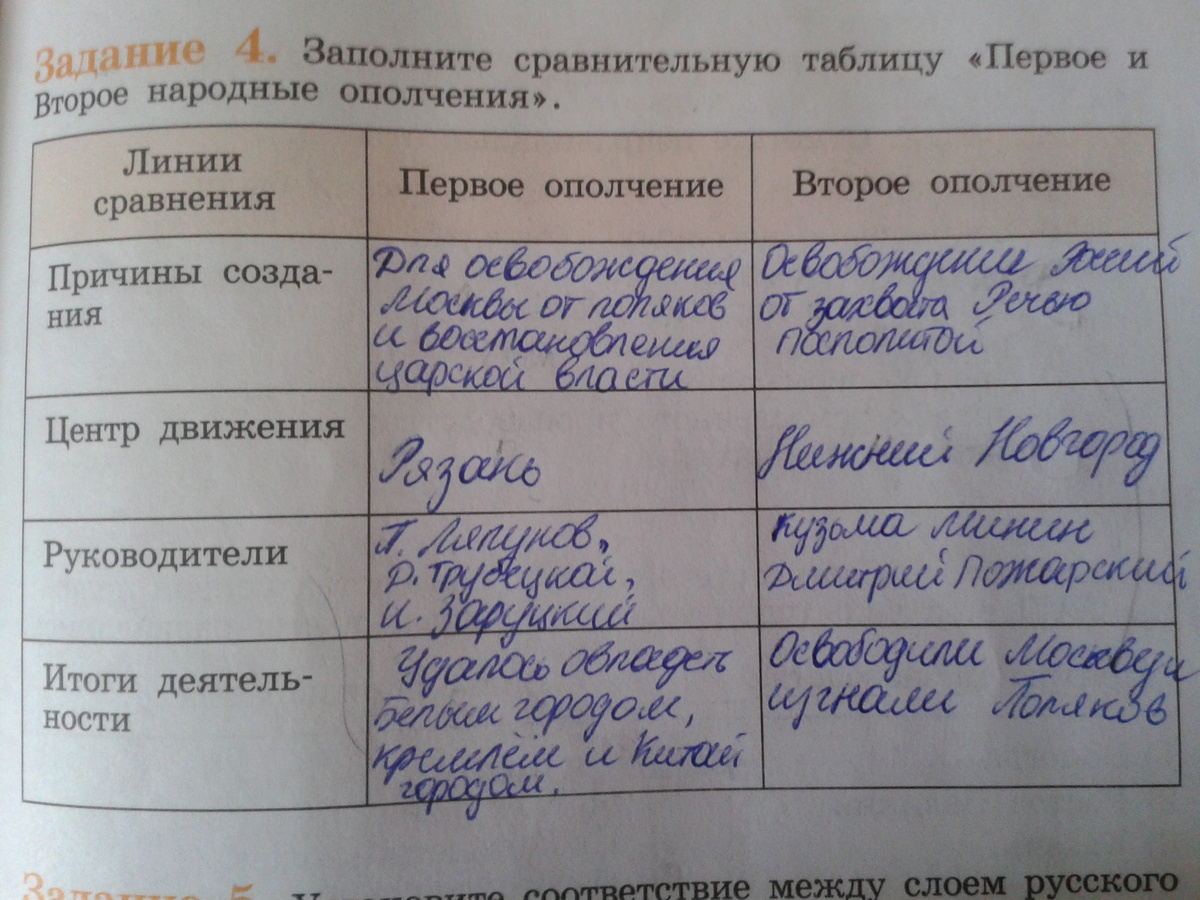 Задание 4. Заполните сравнительную таблицу «Первое и
Второе народные ополчения».
Линии
сравнения
Первое ополчение
Второе ополчение
Причины созда-
ния
Для освобождения
Москвы от поляков
и восстановления
царской власти
Освобождение России
от захвата Речью
Посполитой
Центр движения
Рязань
Нижний Новгород
Руководители
П. Ляпунов,
Д. Трубецкой,
И. Заруцкий
Кузьма Минин
Дмитрий Пожарский
Итоги деятель-
ности
Удалось овладеть
Белым городом,
кремлём и Китай
городом.
Освободили Москву и
изгнали Поляков
Задание 5. Установите соответствие между слоем русского